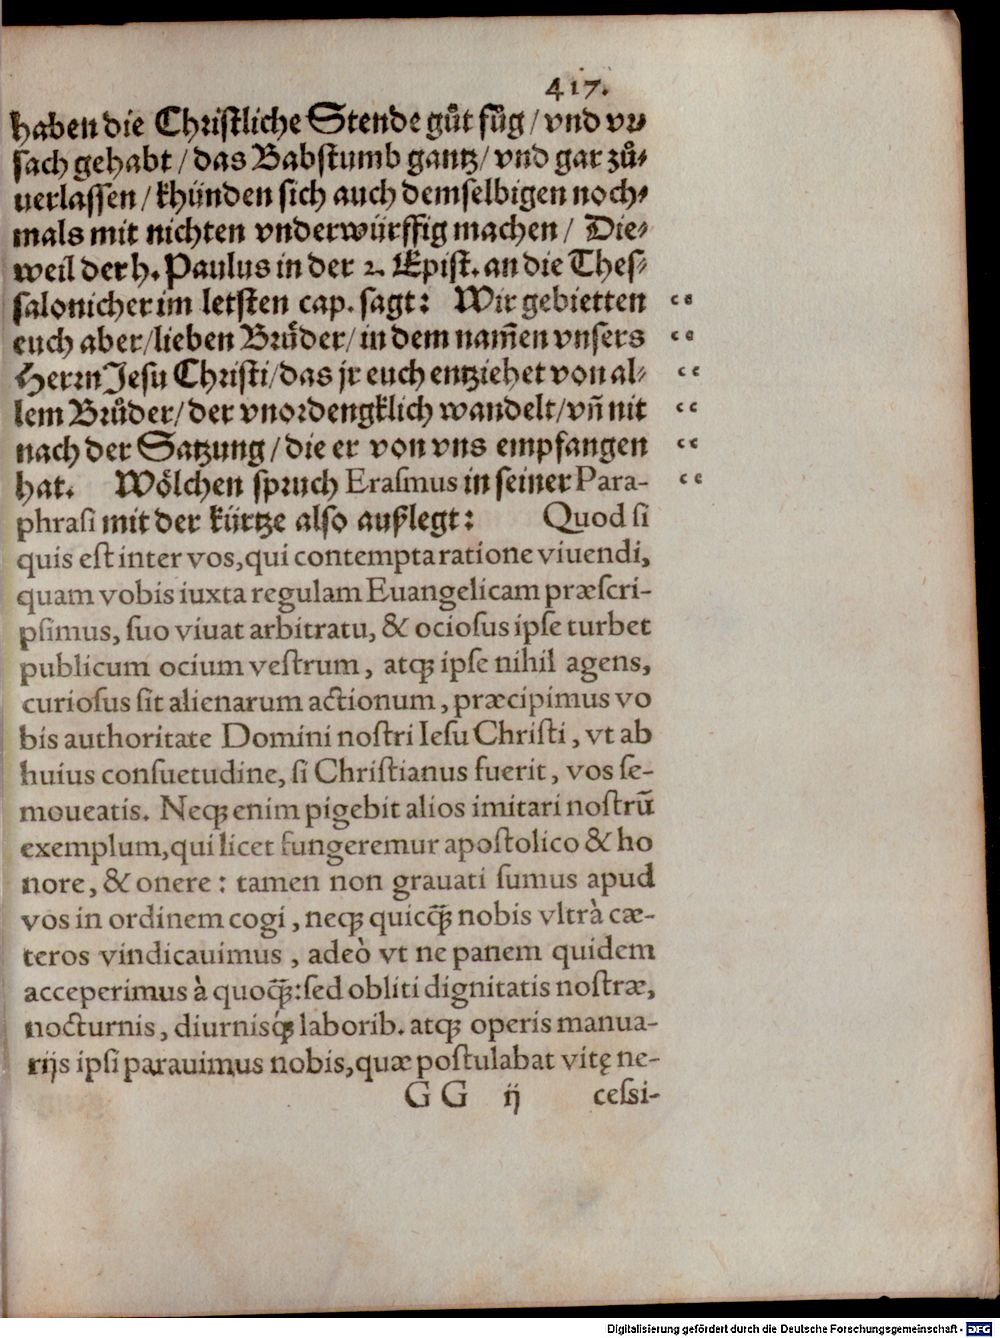 417.
haben die Christliche Stende gůt fůg / vnd vr⸗
sach gehabt / das Babstumb gantz / vnd gar zů⸗
uerlassen / khünden sich auch demselbigen noch⸗
mals mit nichten vnderwürffig machen / Die⸗
weil der h. Paulus in der 2. Epist. an die Thes⸗
salonicher im letsten cap. sagt: Wir gebietten
euch aber / lieben Brůder / in dem nam̃en vnsers
Herrn Jesu Christi / das jr euch entziehet von al⸗
lem Brůder / der vnordengklich wandelt / vñ nit
nach der Satzung / die er von vns empfangen
hat. Wölchen spruch Erasmus in seiner Para-
phrasi mit der kürtze also außlegt: Quod si
quis est inter vos, qui contempta ratione viuendi,
quam vobis iuxta regulam Euangelicam præscri-
psimus, suo viuat arbitratu, & ociosus ipse turbet
publicum ocium vestrum, atqꝫ ipse nihil agens,
curiosus sit alienarum actionum, præcipimus vo
bis authoritate Domini nostri Iesu Christi, vt ab
huius consuetudine, si Christianus fuerit, vos se-
moueatis. Neqꝫ enim pigebit alios imitari nostrũ
exemplum, qui licet fungeremur apostolico & ho
nore, & onere: tamen non grauati sumus apud
vos in ordinem cogi, neqꝫ quicq̃ꝫ nobis vltrà cæ-
teros vindicauimus, adeò vt ne panem quidem
acceperimus à quoq̃ꝫ: sed obliti dignitatis nostræ,
nocturnis, diurnisq́ꝫ laborib. atqꝫ operis manua-
rijs ipsi parauimus nobis, quæ postulabat vitę ne-
G G ij cessi-
Digitalisierung gefördert durch die Deutsche Forschungsgemeinschaft - DFG